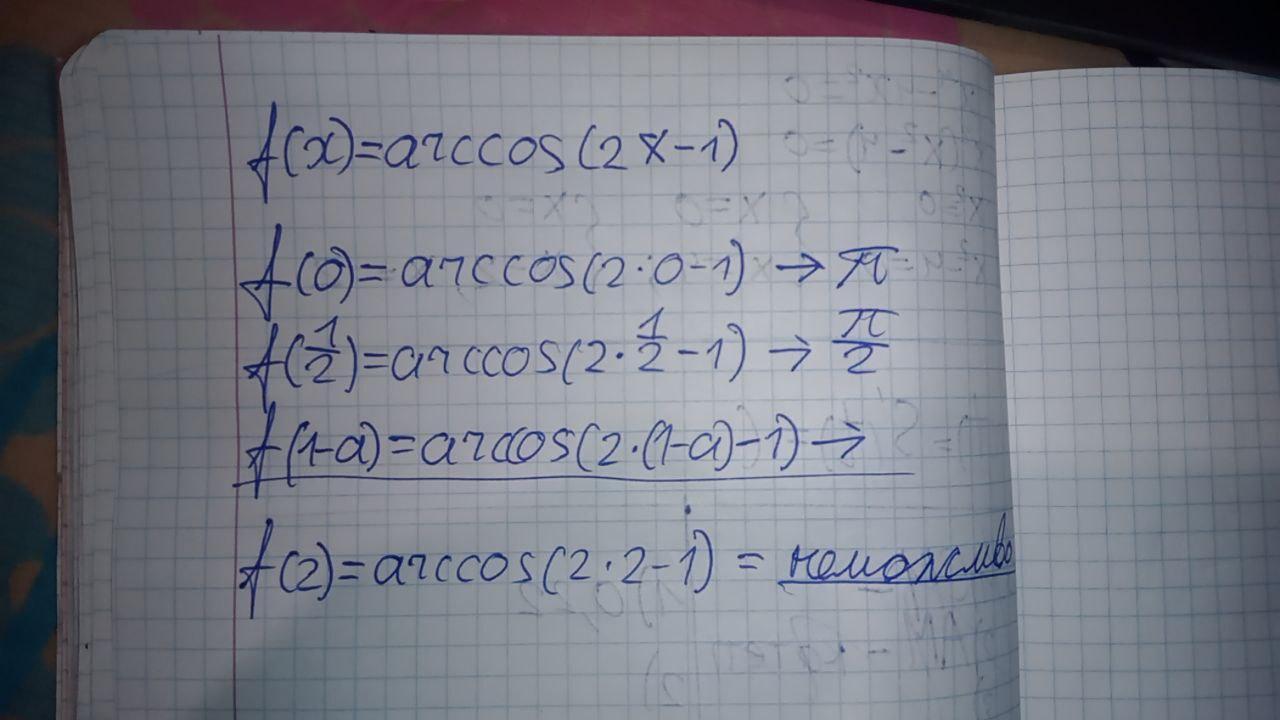 f(x)=arccos(2x-1)
f(0)=arccos(2·0-1)→π
f(1/2)=arccos(2·1/2-1)→π/2
f(1-a)=arccos(2·(1-a)-1)→
f(2)=arccos(2·2-1)=неможливо